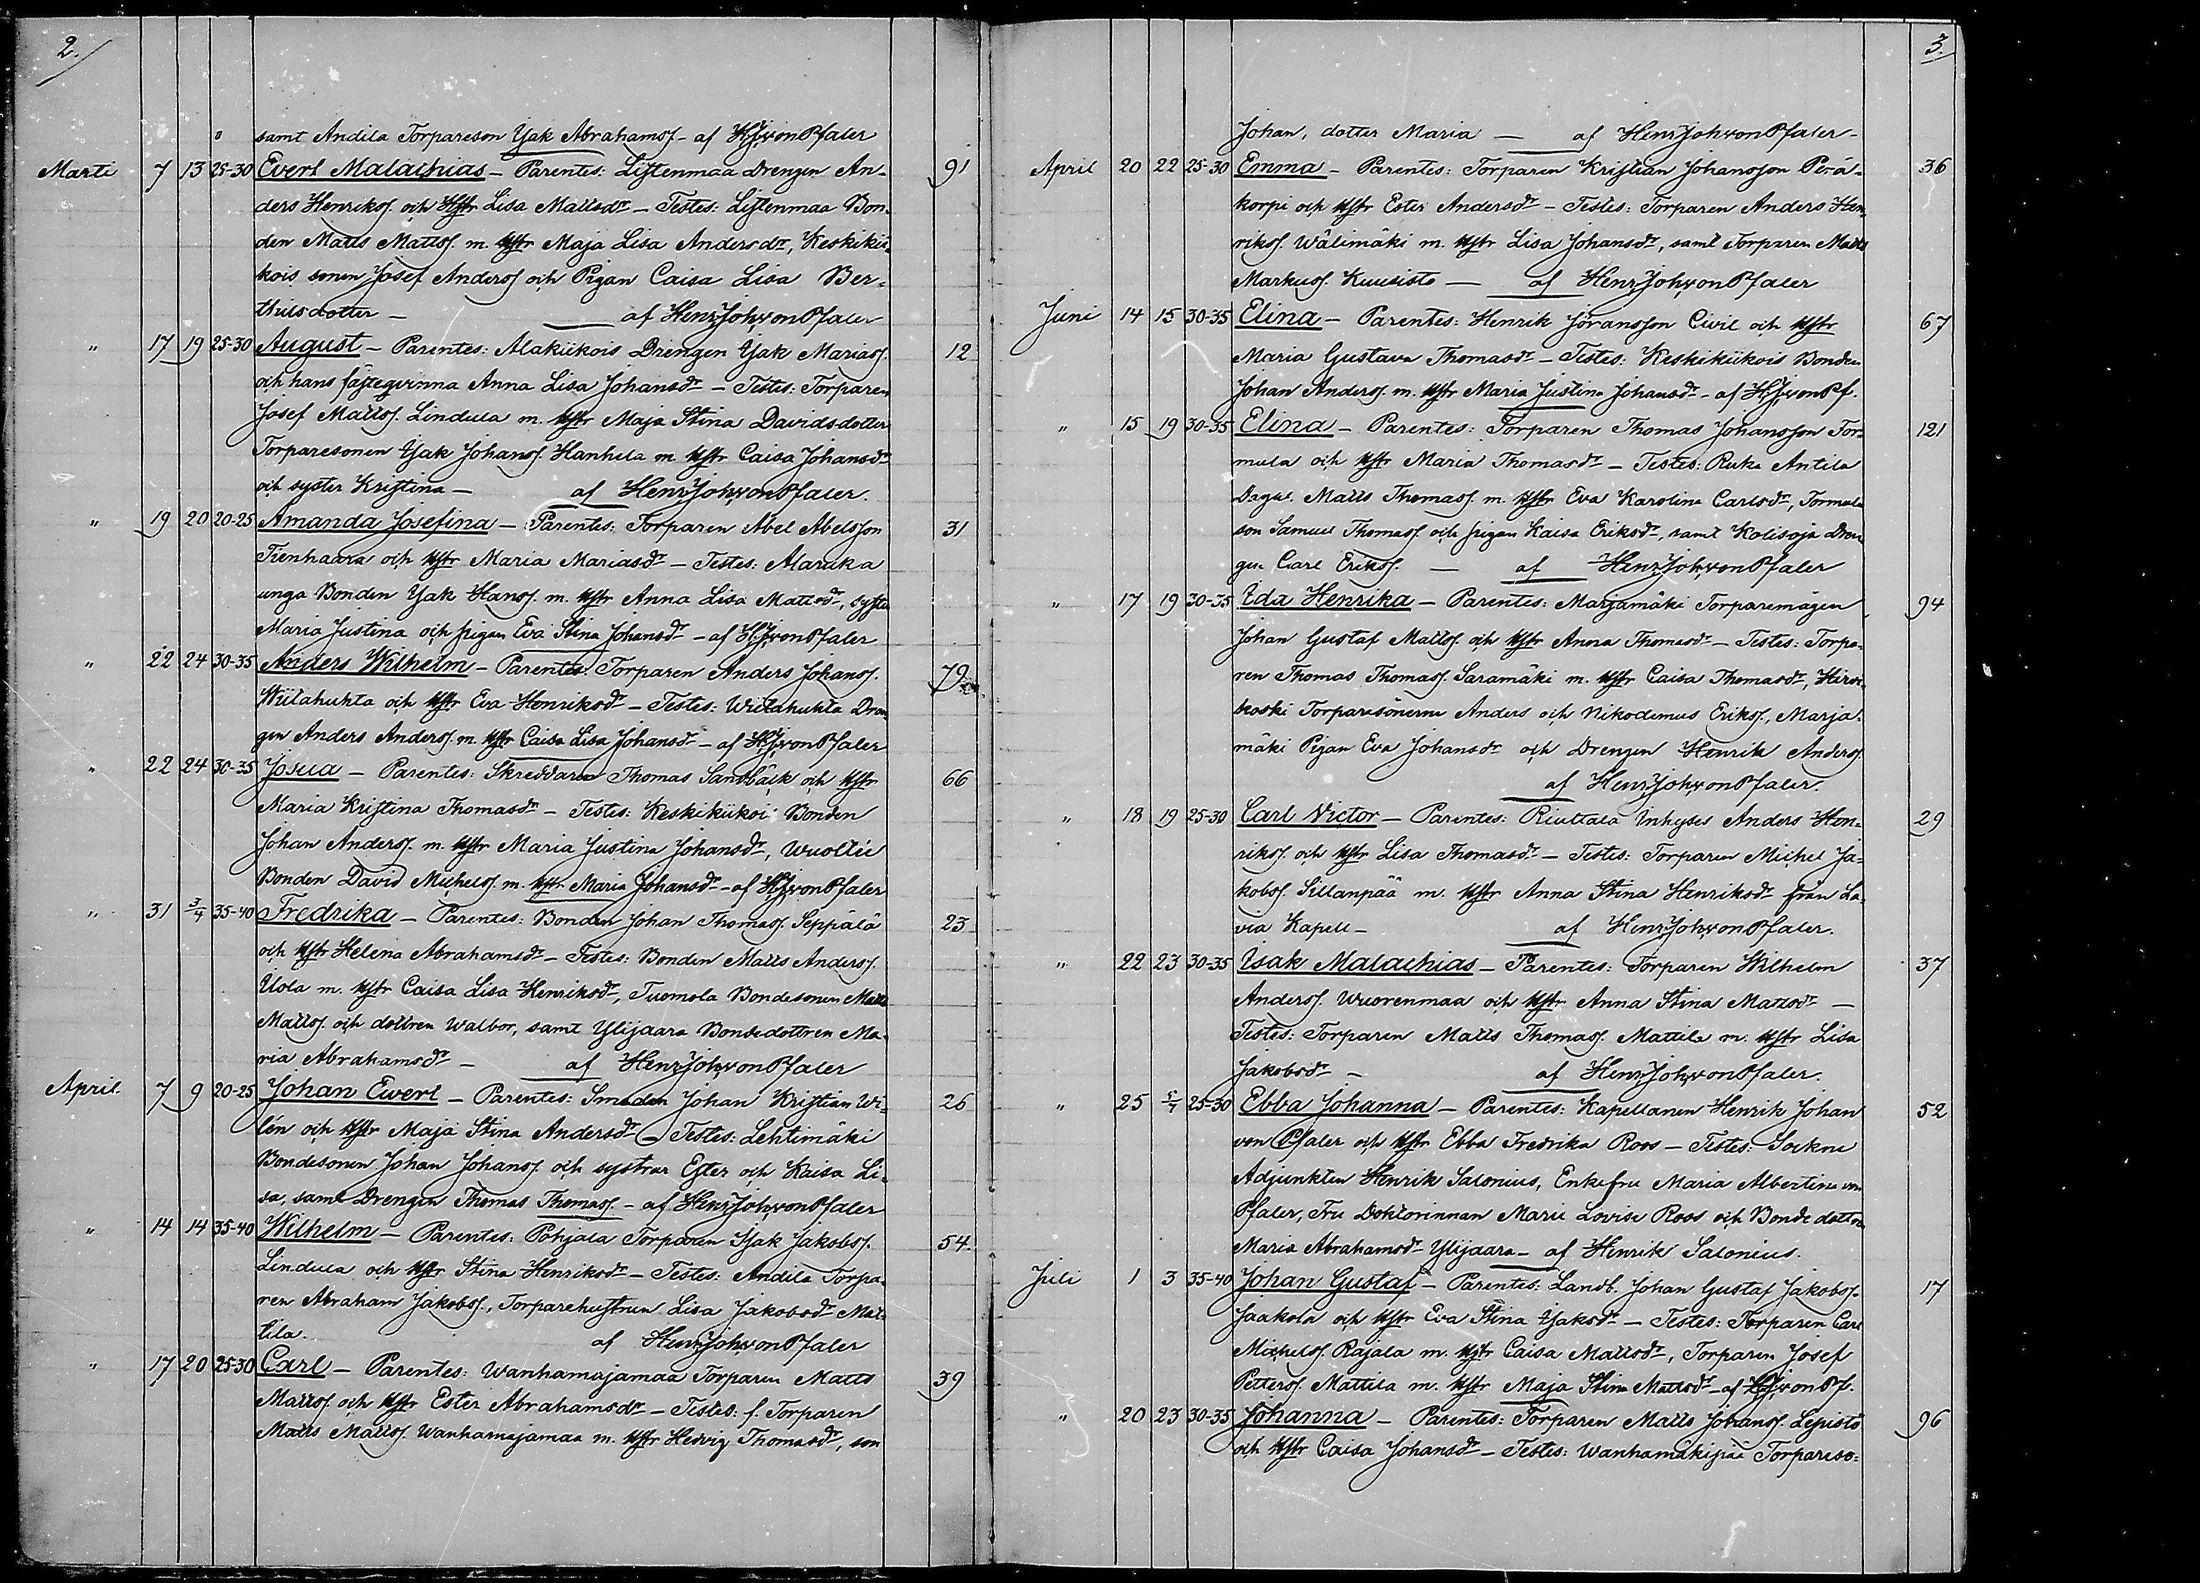 2.
samt Andila Torpareson Isak Abrahamss. - af HJvonPfaler
Marti 7 13 25-30 Evert Malachias - Parentes: Listenmaa Drengen An- 91
ders Henrikss. och Hstr Lisa Mattsdr - Testes: Listenmaa Bon-
den Matts Mattss. m. Hstr Maja Lisa Andersdr, Keskikii-
kois sonen Josef Anderss och Pigan Caisa Lisa Ber-
thilsdotter - af HenrJohvonPfaler
" 17 19 25-30 August - Parentes: Alakiikois Drengen Isak Mariass. 12
och hans fästeqvinna Anna Lisa Johansdr - Testes: Torparen
Josef Mattss. Lindula m. Hstr Maja Stina Davidsdotter
Torparesonen Isak Johanss. Hanhela m. Hstr Caisa Johansdr
och syster Kristina - af HenrJohvonPfaler.
" 19 20 20-25 Amanda Josefina - Parentes: Torparen Abel Abelsson 31
Tienhaara och Hstr Maria Mariasdr - Testes: Alaruka
unga Bonden Isak Hanss. m. Hstr Anna Lisa Mattsdr, syster
Maria Justina och pigan Eva Stina Johansdr - af HJvonPfaler
" 22 24 30-35 Anders Wilhelm - Parentes: Torparen Anders Johanss. 79
Wiitahuhta och Hstr Eva Henriksdr - Testes: Wiitahuhta Dren-
gen Anders Anderss. m. Hstr Caisa Lisa Johansdr - af HJvonPfaler
" 22 24 30-35 Josua - Parentes: Skreddaren Thomas Sandbäck och Hstr 66
Maria Kristina Thomasdr - Testes: Keskikiikoi Bonden
Johan Anderss. m. Hstr Maria Justina Johansdr, Wuoltee
Bonden David Michelss. m. Hstr Maria Johansdr - af HJvonPfaler
" 31 3/4 35-40 Fredrika - Parentes: Bonden Johan Thomass. Seppälä 23
och Hstr Helena Abrahamsdr - Testes: Bonden Matts Anderss.
Uola m. Hstr Caisa Lisa Henriksdr, Tuomola Bondesonen Matts
Mattss. och dottren Walbor, samt Ylijaara Bondedottren Ma-
ria Abrahamsdr - af HenrJohvonPfaler
April 7 9 20-25 Johan Ewert - Parentes: Smeden Johan Kristian Wi- 26
lén och Hstr Maja Stina Andersdr - Testes: Lehtimäki
Bondesonen Johan Johanss. och systrar Ester och Kaisa Li-
sa, samt Drengen Thomas Thomass. - af HenrJohvonPfaler
" 14 14 35-40 Wilhelm - Parentes: Pohjala Torparen Isak Jakobss. 54.
Lindula och Hstr Stina Henriksdr - Testes: Andila Torpa-
ren Abraham Jakobss., Torparehustrun Lisa Jakobsdr Mat-
tila. af HenrJohvonPfaler
" 17 20 25-30 Carl - Parentes: Wanhamajamaa Torparen Matts 39
Mattss. och Hstr Ester Abrahamsdr - Testes: f. Torparen
Matts Mattss. Wanhamajamaa m. Hstr Hedvig Thomasdr, son
3.
Johan, dotter Maria - af HenrJohvonPfaler -
April 20 22 25-30 Emma - Parentes: Torparen Kristian Johansson Perä- 36
korpi och Hstr Ester Andersdr - Testes: Torparen Anders Hen-
rikss. Wälimäki m. Hstr Lisa Johansdr, samt Torparen Matts
Markuss. Kuusisto - af HenrJohvonPfaler
Juni 14 15 30-35 Elina - Parentes: Henrik Jöransson Civil och Hstr 67
Maria Gustava Thomasdr - Testes: Keskikiikois Bonden
Johan Anderss. m. Hstr Maria Justina Johansdr - af HJvonPf.
" 15 19 30-35 Elina - Parentes: Torparen Thomas Johansson Tor- 121
mula och Hstr Maria Thomasdr - Testes: Ruka Antila
Dagw. Matts Thomass. m. Hstr Eva Karolina Carlsdr, Tormula
son Samuel Thomass. och pigan Kaisa Eriksdr, samt Kolisoja Dren-
gen Carl Erikss. - af HenrJohvonPfaler
" 17 19 30-35 Ida Henrika - Parentes: Marjamäki Torparemågen 94
Johan Gustaf Mattss. och Hstr Anna Thomasdr - Testes: Torpa-
ren Thomas Thomass. Saramäki m. Hstr Caisa Thomasdr, Hirvi-
koski Torparesönerne Anders och Nikodemus Erikss., Marja-
mäki Pigan Eva Johansdr och Drengen Henrik Anderss.
af HenrJohvonPfaler.
" 18 19 25-30 Carl Victor - Parentes: Riuttala Inhyses Anders Hen- 29
rikss. och Hstr Lisa Thomasdr - Testes: Torparen Michel Ja-
kobss. Sillanpää m. Hstr Anna Stina Henriksdr från La-
via Kapell - af HenrJohvonPfaler.
" 22 23 30-35 Isak Malachias - Parentes: Torparen Wilhelm 37
Anderss. Wuorenmaa och Hstr Anna Stina Mattsdr -
Testes: Torparen Matts Thomass. Mattila m. Hstr Lisa
Jakobsdr - af HenrJohvonPfaler.
" 25 5/7 25-30 Ebba Johanna - Parentes: Kapellanen Henrik Johan 52
von Pfaler och Hstr Ebba Fredrika Roos - Testes: Sockne
Adjunkten Henrik Salonius, Enkefru Maria Albertina von
Pfaler, Fru Doktorinnan Marie Lovise Roos och Bonde dottren
Maria Abrahamsdr Ylijaara - af Henrik Salonius.
Juli 1 3 35-40 Johan Gustaf - Parentes: Landb. Johan Gustaf Jakobss. 17
Jaakola och Hstr Eva Stina Isaksdr - Testes: Torparen Carl
Michelss. Rajala m. Hstr Caisa Mattsdr, Torparen Josef
Petterss. Mattila m. Hstr Maja Stina Mattsdr - af HJvonPf.
" 20 23 30-35 Johanna - Parentes: Torparen Matts Johanss. Lepistö 96
och Hstr Caisa Johansdr - Testes: Wanhamäkipää Torpareso-